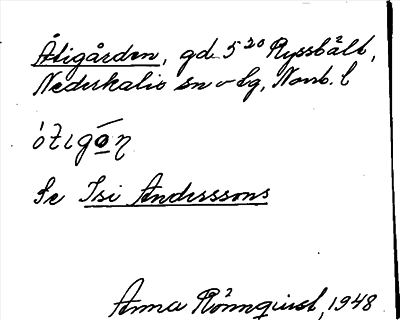 Åtigården, gd. 5²⁰ Ryssbält,
Nederkalix sn o lg, Norrb. l
Se Isi Anderssons
Anna Rönnquist, 1948